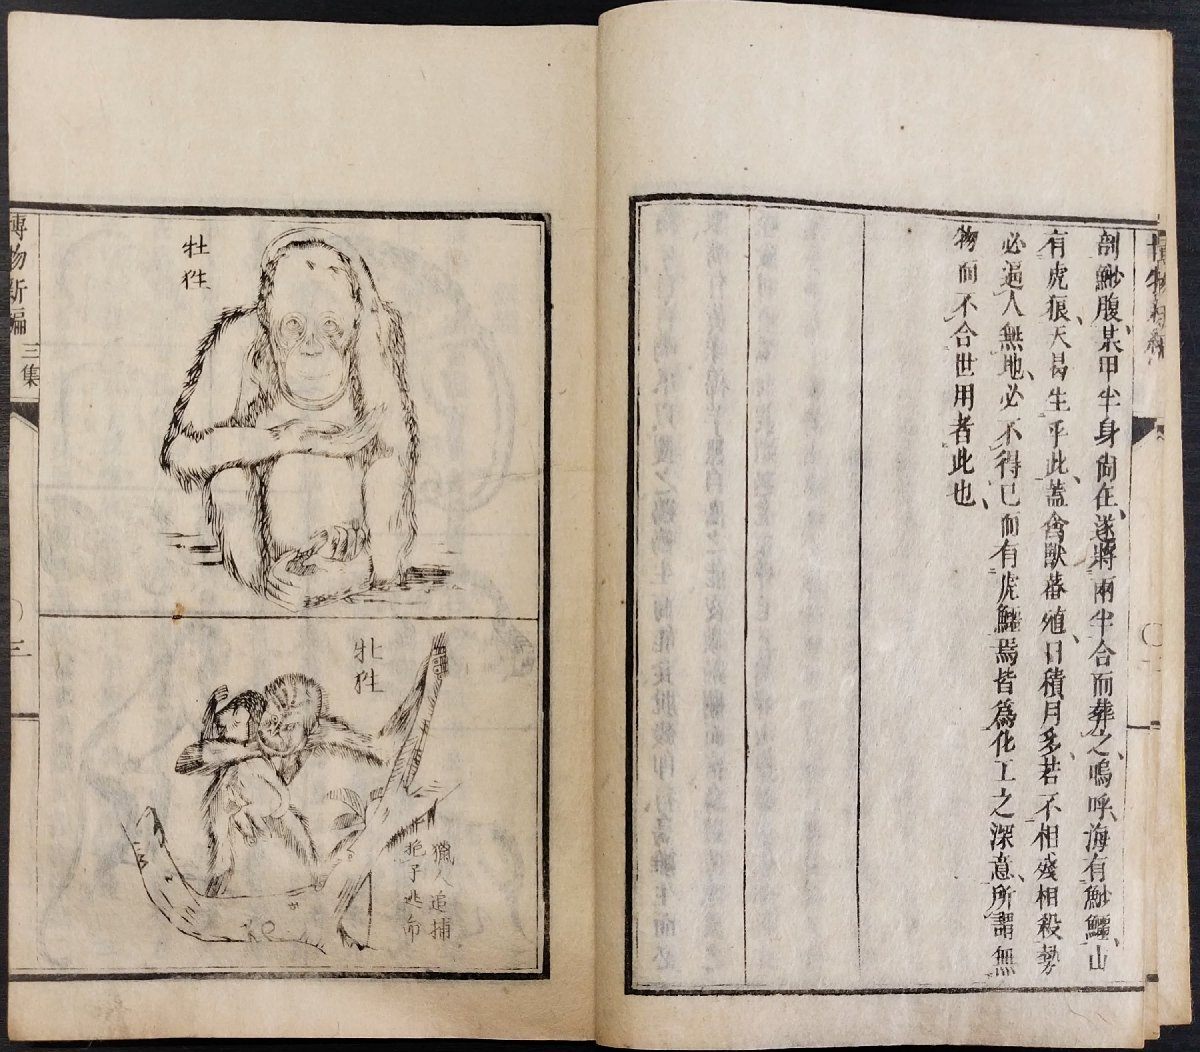 博物新編
剖鯊腹某甲半身尙在遂將兩半合而葬之嗚呼海有鯊鱷山
有虎狼天曷生乎此蓋禽獸蕃殖日積月多若不相殘相殺勢
必逼人無地必不得已而有虎鱷焉皆爲化工之深意所謂無
物而不合世用者此也
牡狌
牝狌
獵人追捕
抱子逃命
博物新編
三集
三